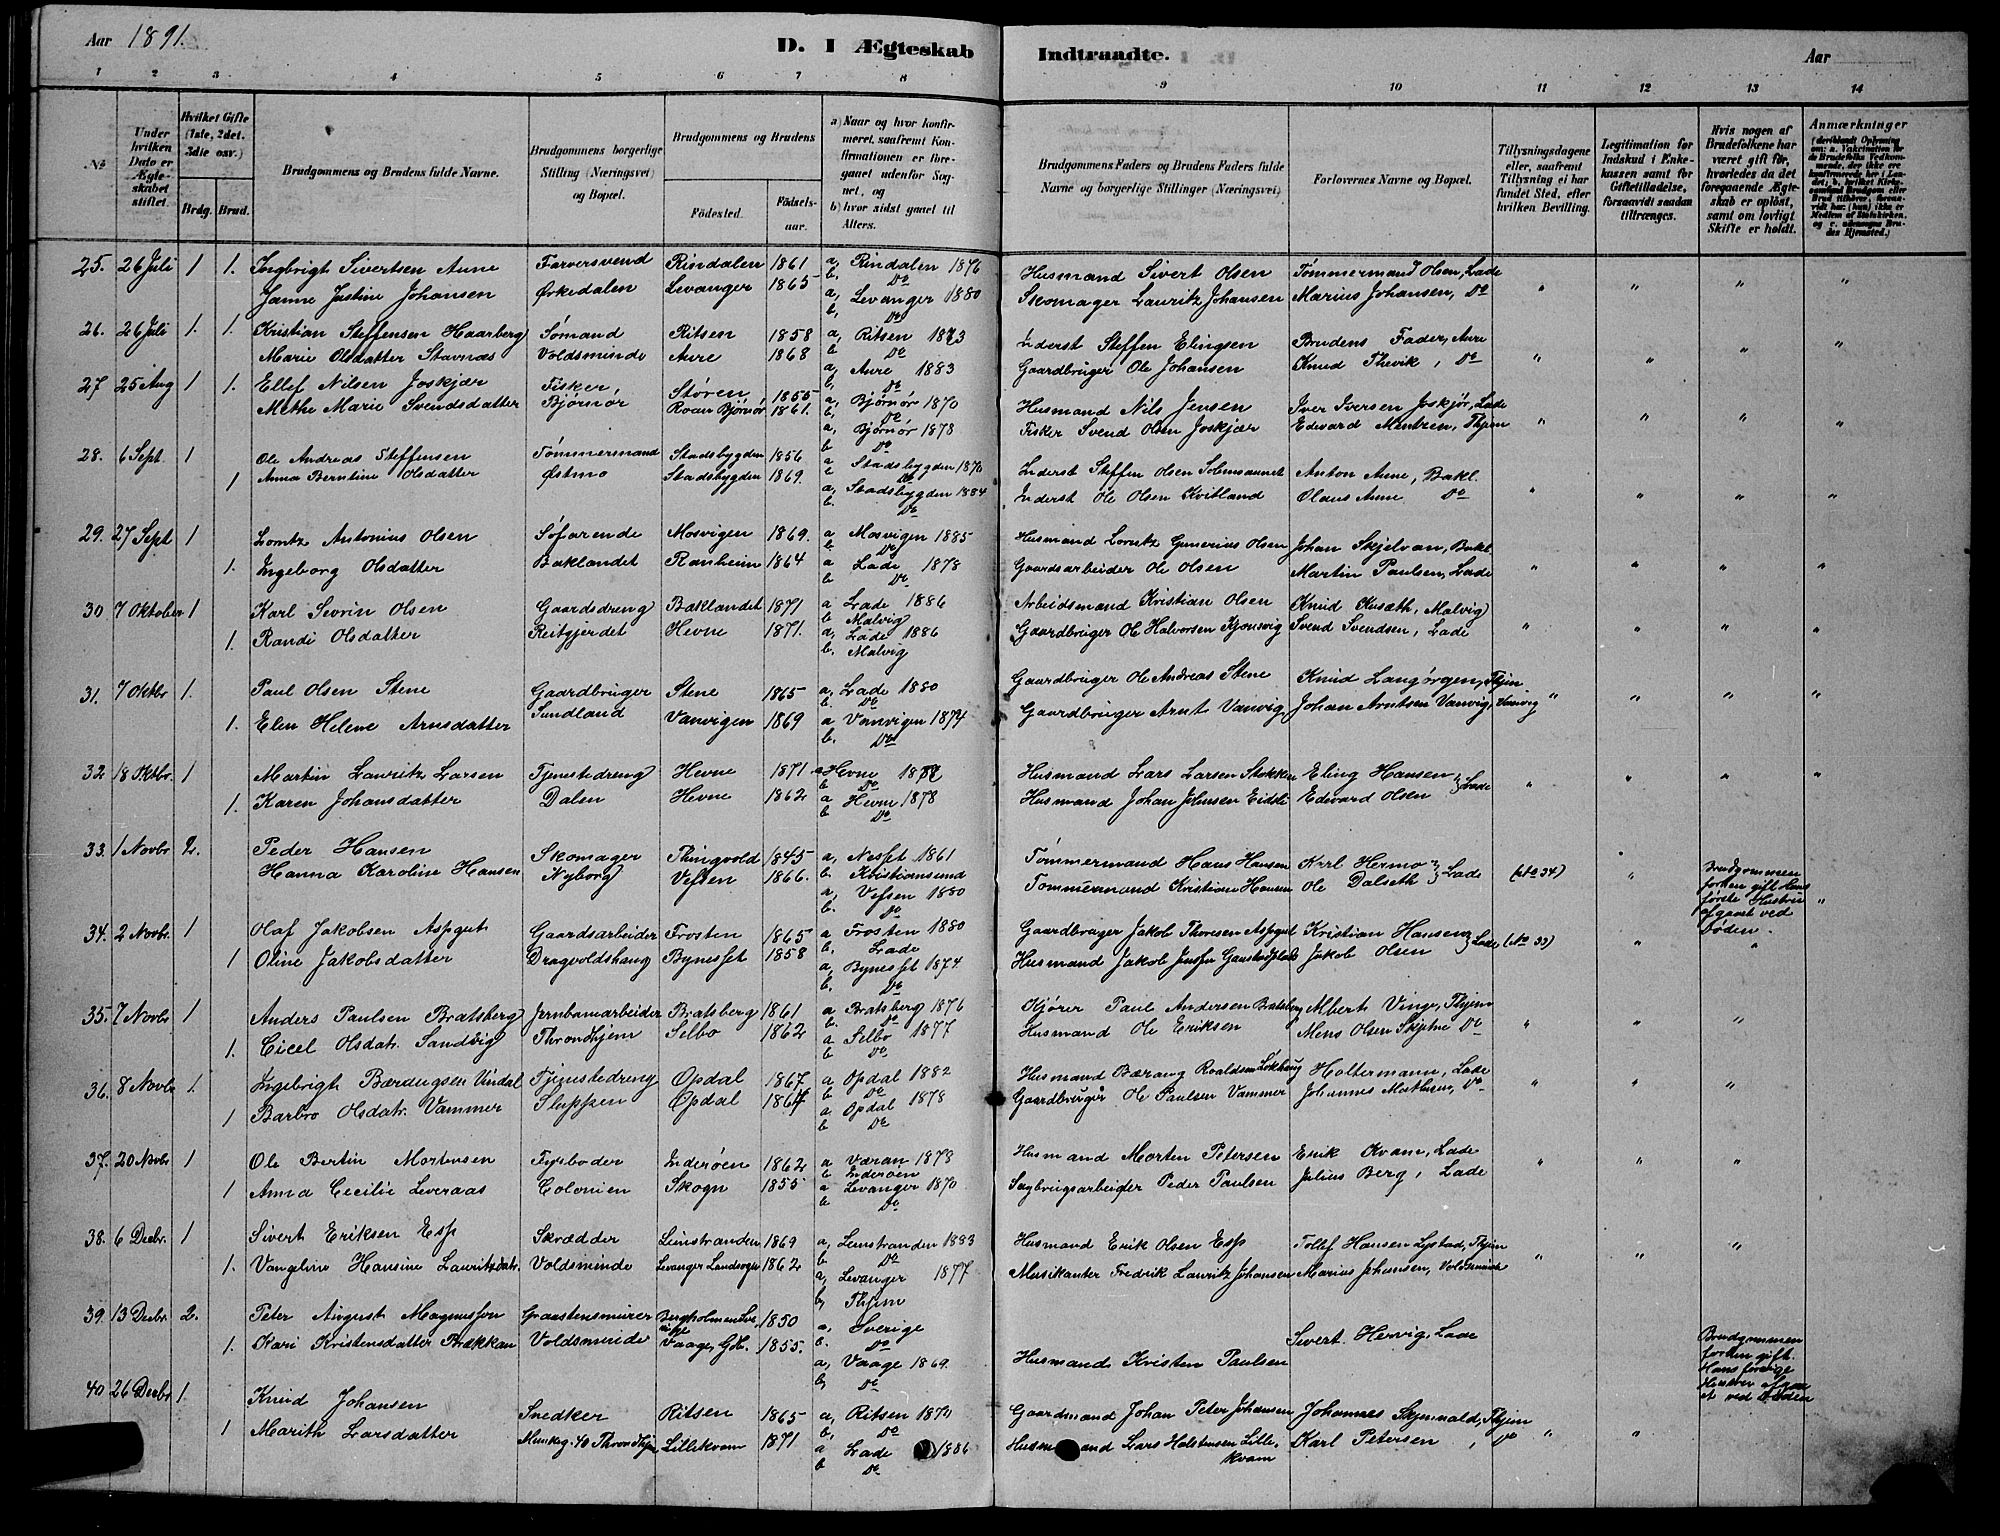 Aar 1891.
D. I Ægteskab Indtraadte.
Aar
1 2 3 4 5 6 7 8 9 10 11 12 13 14
No
Under hvilken Dato er Ægteskabet stiftet.
Hvilket Gifte (1ste, 2det, 3die osv.)
Brdg. Brud.
Brudgommens og Brudens fulde Navne.
Brudgommens borgerlige Stilling (Næringsvei) og Bopæl.
Brudgommens og Brudens
Födested. Födselsaar.
a) Naar og hvor konfirmeret, saafremt Konfirmationen er foregaaet udenfor Sognet, og
b) hvor sidst gaaet til Alters.
Brudgommens Faders og Brudens Faders fulde Navne og borgerlige Stillinger (Næringsvei.)
Forlovernes Navne og Bopæl.
Tillysningsdagene eller, saafremt Tillysning ei har fundet Sted, efter hvilken Bevilling.
Legitimation for Indskud i Enkekassen samt for Giftetilladelse, forsaavidt saadan tiltrænges.
Hvis nogen af Brudefolkene har været gift før, hvorledes da det foregaaende Ægteskab er oplöst, samt om lovligt Skifte er holdt.
Anmærkninger
25. 26 Juli 1 1. Ingbrigt Sivertsen Aune Farversvend Rindalen 1861 a, Rindalen 1876 b, Do Husmand Sivert Olsen Tømmermand Olsen, Lade " " " "
Janne Justine Johansen Ørkedalen Levanger 1865 a, Levanger 1880 b, Do Skomager Lauritz Johansen Marius Johansen, Do
26. 26 Juli 1. 1. Kristian Steffensen Haarberg Sømand Ritsen 1858 a, Ritsen 1873 b Do Inderst Steffen Elingsen Brudens Fader, Aure " " " "
Marie Olsdatter Stavnæs Voldsminde Aure 1868 a, Aure 1883 b, Do Gaardbruger Ole Johansen Knud Thevik, Do
27 25 Aug 1 1. Ellef Nilsen Joskjær Fisker, Støren 1855 a, Bjørnør 1870 b, Do Husmand Nils Jensen Iver Iversen Joskjør, Lade " " " "
Methe Marie Svendsdatter Bjørnør Roan Bjørnør 1861. a, Bjørnør 1878 b. Do Fisker Svend Olsen Joskjær Edvard Mentzen, Thjem
28. 6 Sept. 1 Ole Andreas Steffensen Tømmermand Stadsbygden 1856 a Stadsbygden 1870 b Do Inderst Steffen Olsen Anton Aune, Bakl. " " " "
1 Anna Berntine Olsdatter Østmo Stadsbygden 1869. a, Stadsbygden 1884 b. Do Inderst Ole Olsen Kvitland Olaus Aune Do
29. 27 Sept 1 Lorntz Antonius Olsen Søfarende Mosvigen 1869. a Mosvigen 1885 b Do Husmand Lorntz Gunerius Olsen Johan Skjelvan, Bakl " " " "
1. Ingeborg Olsdatter Baklandet Ranheim 1864 a Lade 1878 b Do Gaardsarbeider Ole Olsen Martin Paulsen, Lade
30 7 Oktober 1 Karl Sevrin Olsen Gaardsdreng Baklandet 1871 a Lade 1886 b Malvig Arbeidsmand Kristian Olsen Knud Husæth, Malvig " " " "
1. Randi Olsdatter Reitgjerdet Hevne 1871. a, Lade 1886 b. Malvig Gaardbruger Ole Halvorsen Kjønsvig Svend Svendsen, Lade
31. 7 Oktbr 1. Paul Olsen Stene Gaardbruger Stene 1865 a, Lade 1880 b. Do Gaardbruger Ole Andreas Stene Knud Langørgen, Thjem " " " "
1. Elen Helene Arnsdatter Sundland Vanvigen 1869 a Vanvigen 1874 b. Do Gaardbruger Arnt Vanvig Johan Arntsen Vanvig, Vanvig
32 18 Oktbr. 1 Martin Lauritz Larsen Tjenestedreng Hevne 1871 a Hevne b Do Husmand Lars Larsen Stokken Eling Hansen } Lade " " " "
1. Karen Johansdatter Dalen Hevne 1862 a Hevne 1878 b Do Husmand Johan Johnsen Eidsli Edvard Olsen
33. 1 Novbr 2. Peder Hansen Skomager Thingvold 1845 a, Nesset 1861 b. Kristiansund Tømmermand Hans Hansen Karl Hermo } Lade (No 34) " Brudgommen forhen gift. Hans første Hustru afgaaet ved Døden. "
Hanna Karoline Hansen Nyborg Vefsen 1866. a, Vefsen 1880 b. Do Tømmermand Kristian Hansen Ole Dalseth
34. 2 Novbr. 1 Olaf Jakobsen Aspgut Gaardsarbeider Frosten 1865 a Frosten 1880 b. Lade Gaardbruger Jakob Thoresen Aspgut Kristian Hansen } Lade (No 33) " "
1 Oline Jakobsdatter Dragvoldshaug Bynesset 1858 a, Bynesset 1874 b. Do Husmand Jakob Jakob Olsen
35. 7 Novbr 1 Anders Paulsen Bratsberg Jernbanearbeider Bratsberg 1861 a Bratsberg 1876 b. Do Kjører Paul Andersen Bratsberg Albert Vinge, Thjem " " "
1. Cicel Olsdatr. Sandvig Throndhjem Selbo 1862 a Selbo 1877 b Do Husmand Ole Eriksen Mens Olsen Skjetne Do
36. 8 Novbr 1. Ingebrigt Bærdugsen Vindal Tjenestedreng Opdal 1867 a Opdal 1882 b Do Husmand Bærdug Roaldsen Løkhaug Holtermann, Lade " " "
1 Barbro Olsdatr. Vammer Sluppen Opdal a Opdal 1878 b Do Gaardbruger Ole Paulsen Vammer Johannes Mathisen, Do
37. 20 Novbr 1 Ole Bertin Mortensen Fyrbøder Inderøen 1862 a Væran 1878 b Inderøen Husmand Morten Petersen Erik Kvam, Lade " " "
1 Anna Cecilie Leveraas Colonien Skogn 1855 a Levanger 1870 b Do Sagbrugsarbeider Peder Paulsen Julius Berg, Lade
38. 6 Decbr. 1 Sivert Eriksen Esp Skrædder Leinstranden 1869 a, Leinstranden 1883 b Do Husmand Erik Olsen Esp Tollef Hansen Lystad, Thjem " " "
1. Vangeline Hansine Lauritzdatr. Voldsminde Levanger Landsogn 1862 a, Levanger 1877 b, Thjem Musikanter Fredrik Lauritz Johansen Marius Johansen, Voldsminde
39. 13 Decbr. 2. Peter August Magnusson Graastensmurer Bergholmen Sverige 1850 a, Sverige b. Do Sivert Hervig, Lade Brudgommen forhen gift. Hans forrige Hustru afgaaet ved Døden
1. Kari Kristensdatter Brækkan Voldsminde Vaage, Gdb. 1855. a, Vaage 1869. b, Do Husmand Kristen Paulsen
40 26 Decbr 1. Knud Johansen Snedker Ritsen 1865 a, Ritsen b, Do Gaardmand Johan Peter Johansen Johannes Skjemvald, Thjem " "
1 Marith Larsdatter Munkeg. 40 Throndhjem Lillekvam 1871 a Lade 1886 b Do Husmand Lars Halstensen Lillekvam Karl Petersen, Do